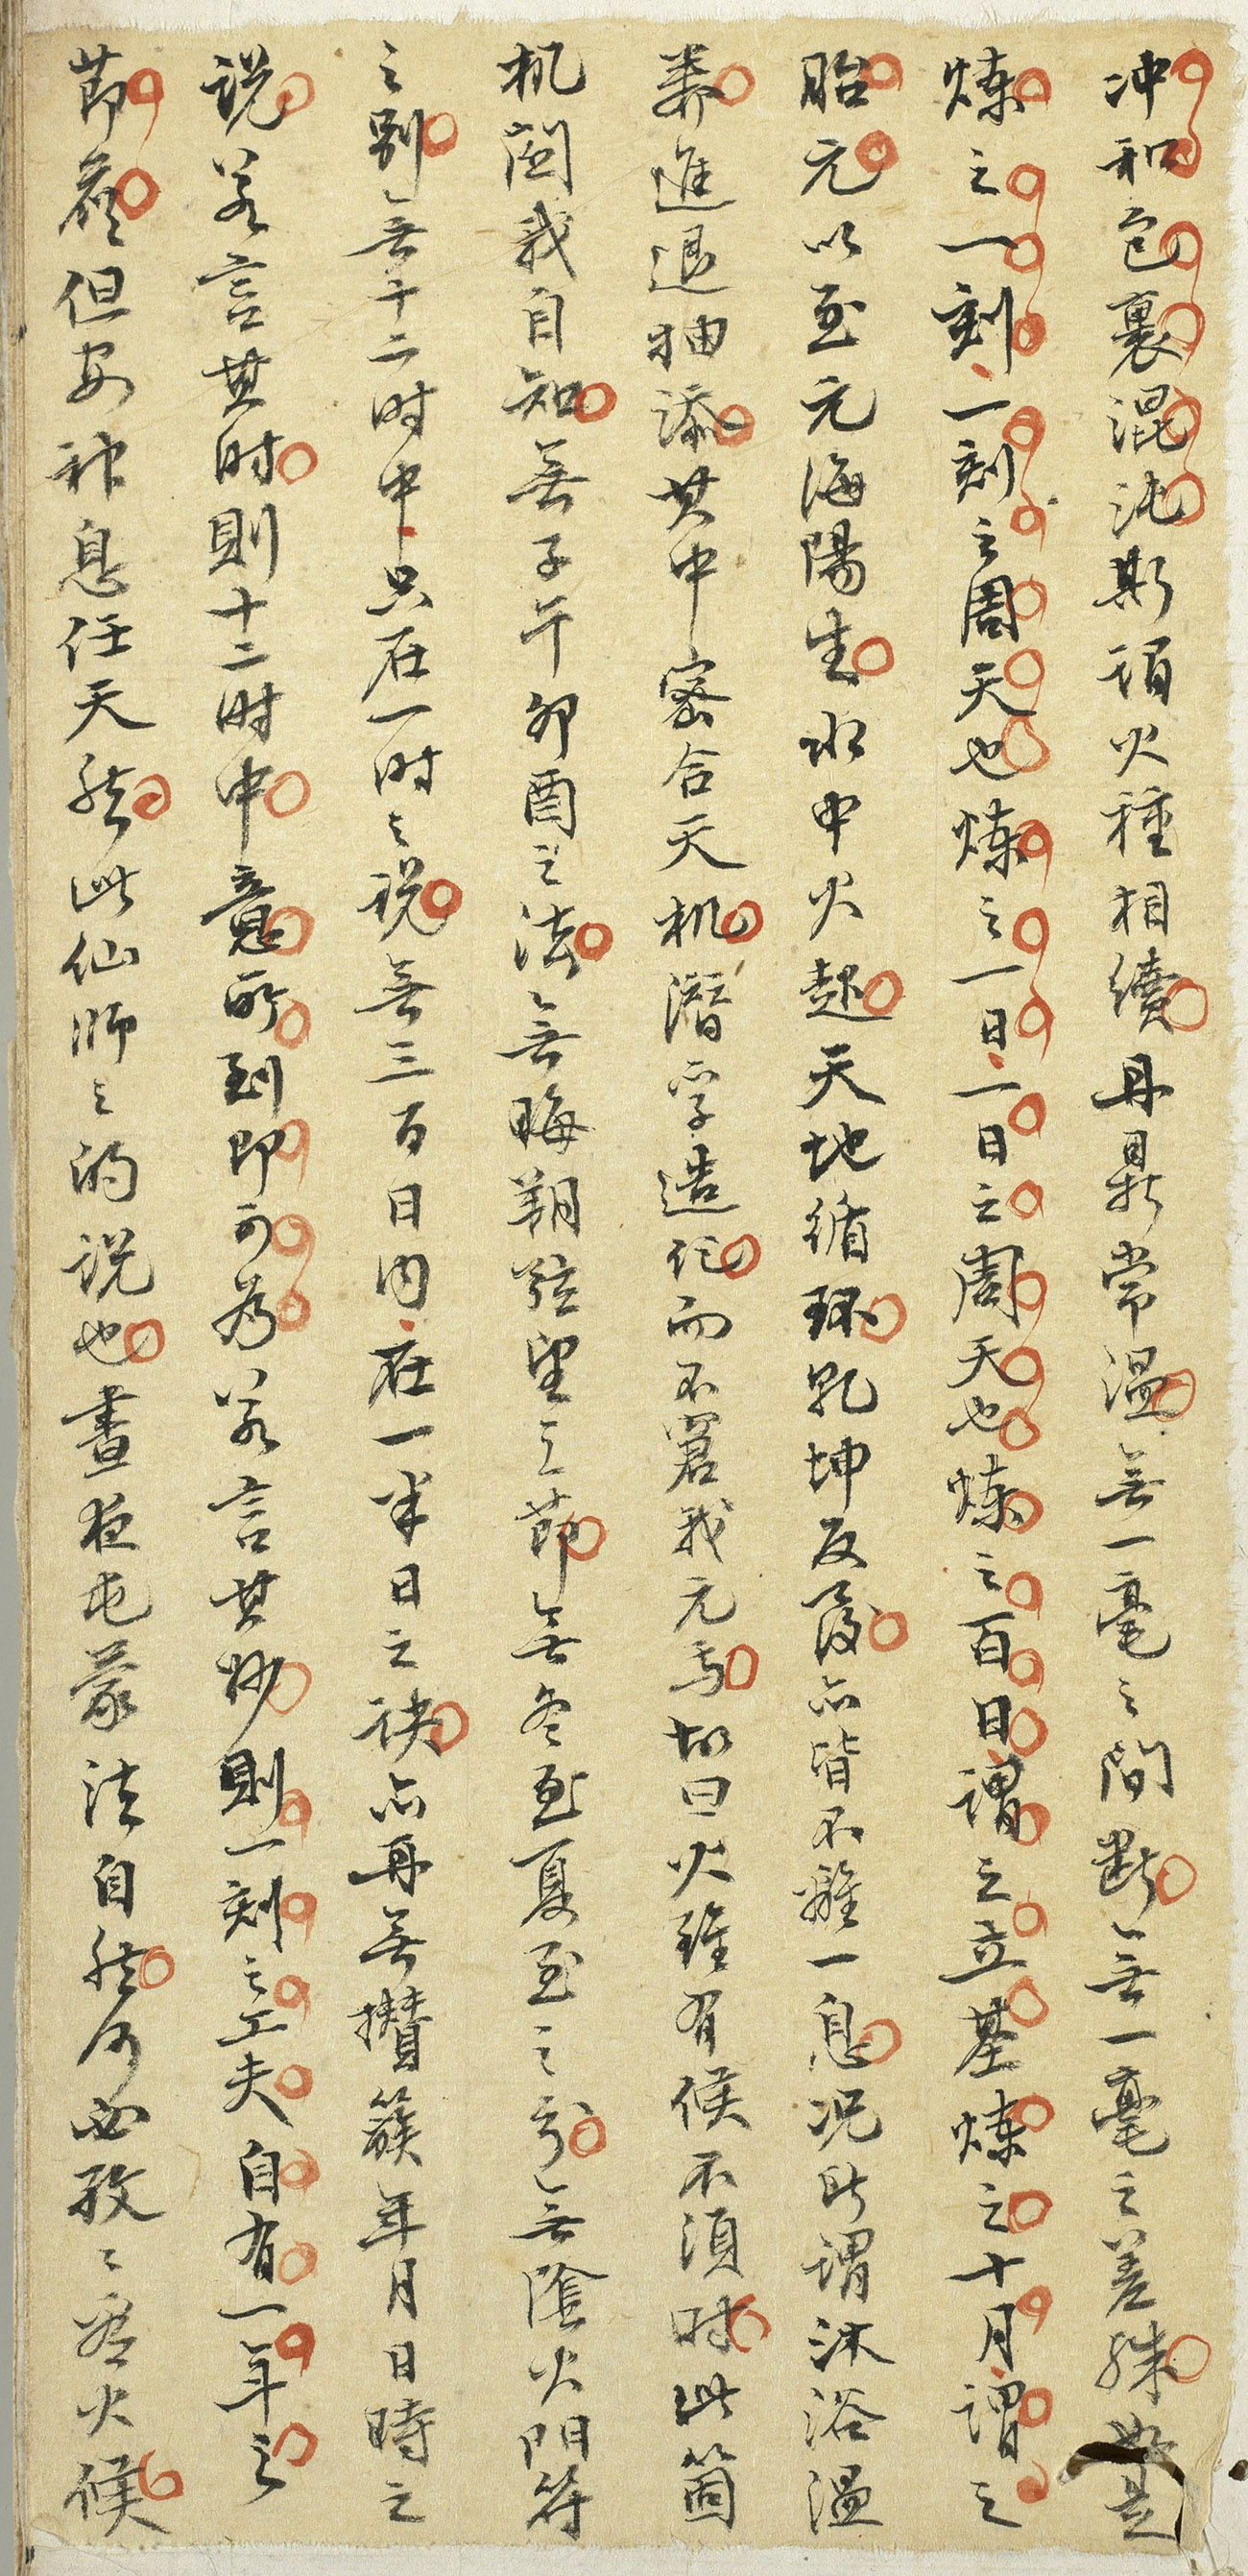 冲和包裹混沌斯須火種相續丹鼎常溫無一毫之間斷無一毫之差殊如是
煉之一刻一刻之周天也煉之一日一日之周天也煉之百日謂之立基煉之十月謂之
胎元以至元海陽生水中火起天地循環乹坤反覆亦皆不離一息况所謂沐浴溫
養進退抽添其中密合天机潛孚造化而不窘我元焉故曰火雖有候不須时此箇
机関我自知無子午卯酉之法無晦朔弦望之節無冬至夏至之分無陰火阳符
之别無十二时中只在一时之説無三百日内在一半日之訣亦再無攅簇年月日時之
説若言其时則十二时中意所到即可為若言其妙則一刻之工夫自有一年之
節候但安神息任天然此仙师之的説也晝夜屯蒙法自然何必孜孜看火候